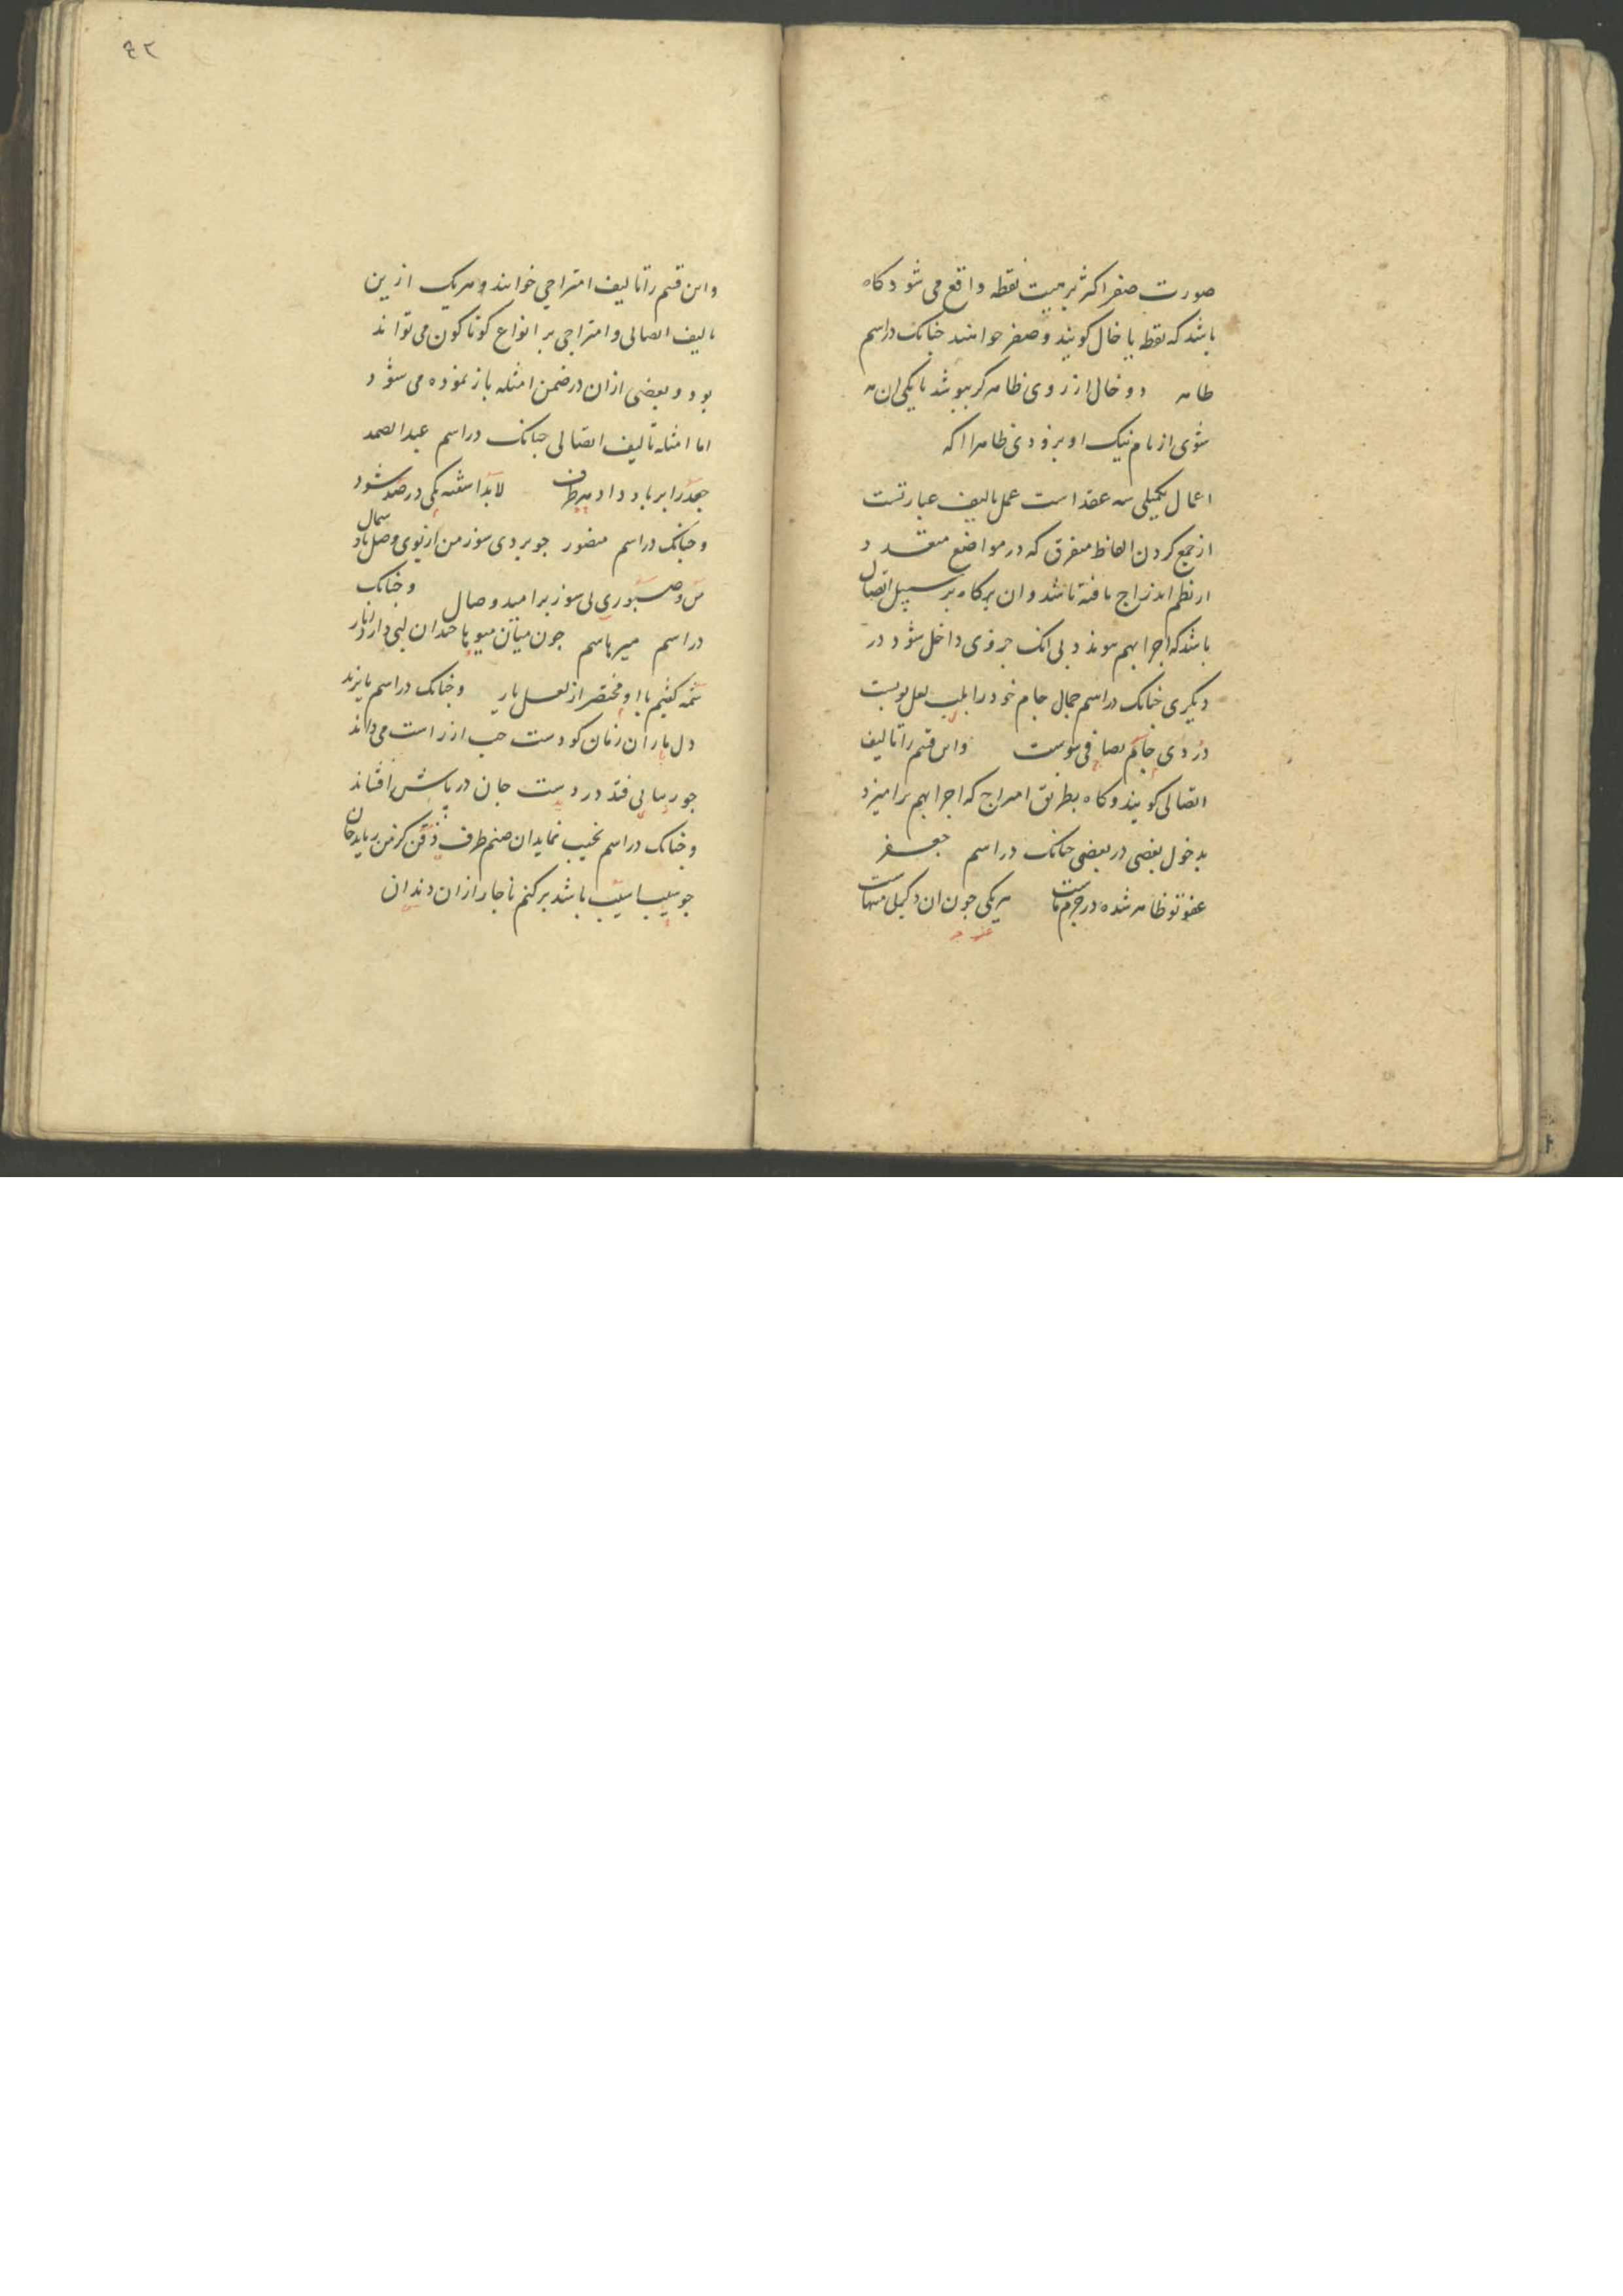 صورت صفر اکثر بر هیت نقطه واقع می شود کاه
باشد که نقطه یا خال کویند و صفر خواهند خنانک در اسم
طاهر دو خال از روی ظاهر کر بپوشد با یکی ان مه
شوی از نام نیک او برودی ظاهرا اکه
اعمال تکمیلی سه عقد است عمل تالیف عبارتست
از جمع کردن الفاظ متفرق که در مواضع متعدد
از نظم اندراج یافته باشد و ان هرکاه بر سبیل اتصال
باشد که اجزا بهم پیوندد بی انک جزوی داخل شود در
دیکری خنانک در اسم جمال جام خود را بلب لعل تو بست
دردی جام بصافی پیوست و این قسم را تالیف
اتصالی کویند و کاه بطریق امتزاج که اجزا بهم برامیزد
بدخول بعضی در بعضی خنانک در اسم جعفر
عفو تو ظاهر شده در جرم ماست هر یکی جون ان دکیلی منهاست
۴۲
و این قسم را تالیف امتزاجی خوانند و هر یک ازین
تالیف اتصالی و امتزاجی بر انواع کوناکون می تواند
بود و بعضی ازان در ضمن امثله باز نموده می شود
اما امثله تالیف اتصالی جنانک در اسم عبد الصمد
جعد را بر باد داد هر طرف لابد اشفته یکی در صد شود
و جنانک در اسم منصور جو بردی سوز من از بوی وصل باد شمال
من و صبوری بی سوز بر امید وصال و خنانک
در اسم میر هاسم جون میان میوها خندان لبی دارد انار
شمه کفتیم با او مختصر از لعل یار و خنانک در اسم بایزید
دل یاران زمان کو دست جب از راست می داند
جو زیبایی فتد در دست جان در پایش افشاند
و خنانک در اسم نجیب نماید ان صنم طرف ذقن کز من رباید جان
جو سیب اسیب باشد بر کنم ناجار ازان دندان